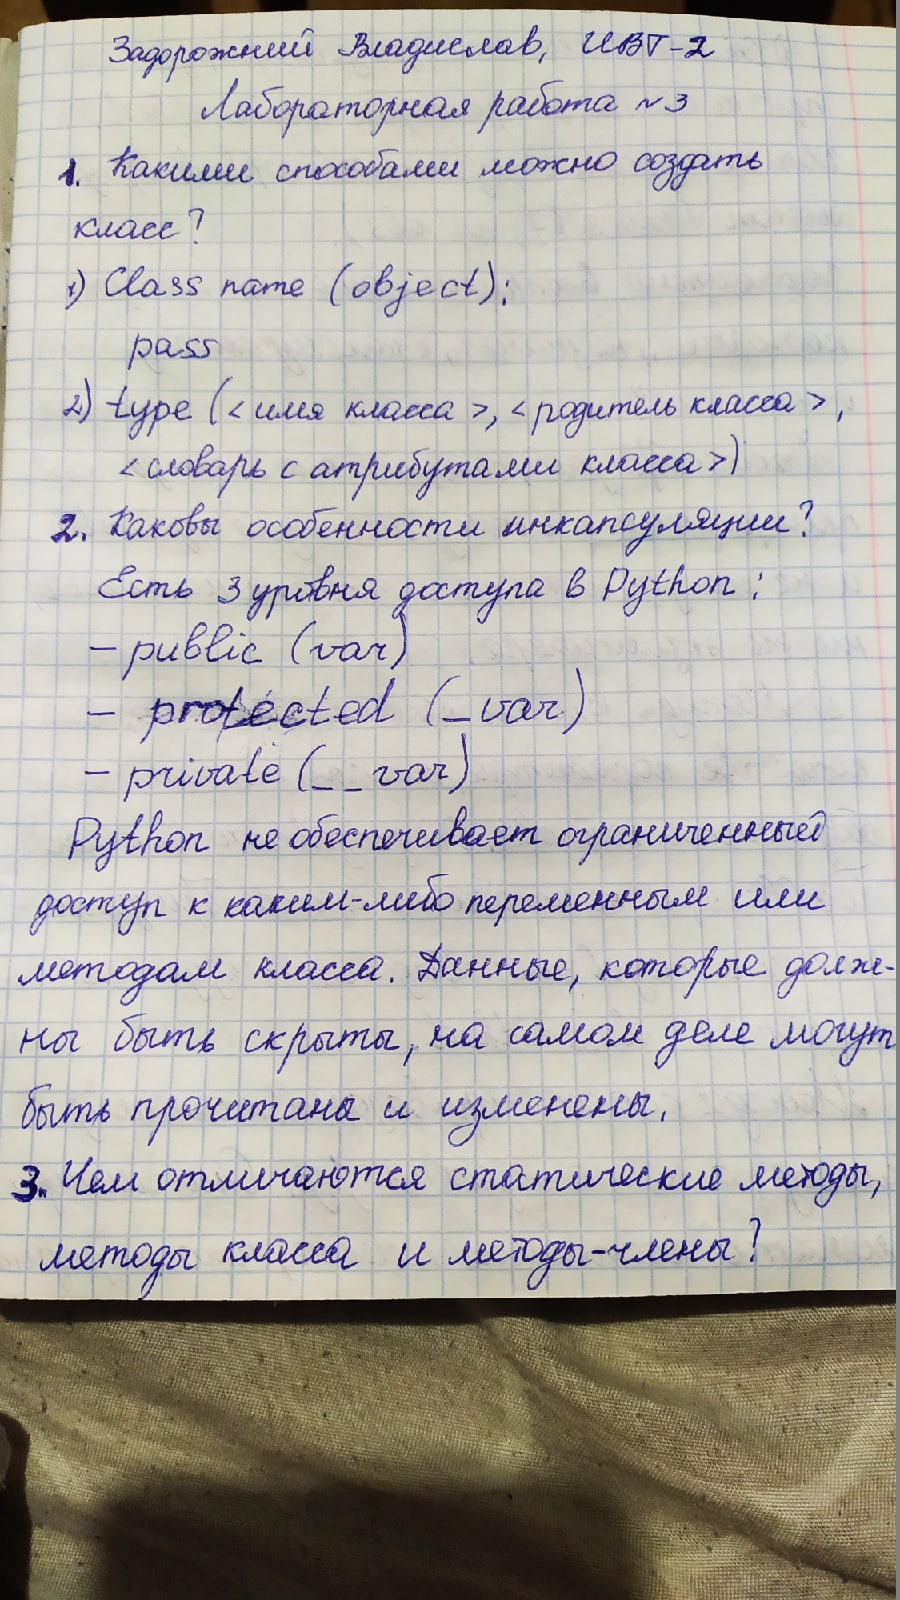 Задорожний Владислав, ИВТ-2
Лабораторная работа №3
1. Какими способами можно создать
класс?
1) Class name (object):
pass
2) type (<имя класса>, <родитель класса>,
<словарь с атрибутами класса>)
2. Каковы особенности инкапсуляции?
Есть 3 уровня доступа в Python:
- public (var)
- protected (_var)
- private (__var)
Python не обеспечивает ограниченный
доступ к каким-либо переменным или
методам класса. Данные, которые долж-
ны быть скрыты, на самом деле могут
быть прочитаны и изменены.
3. Чем отличаются статические методы,
методы класса и методы-члены?